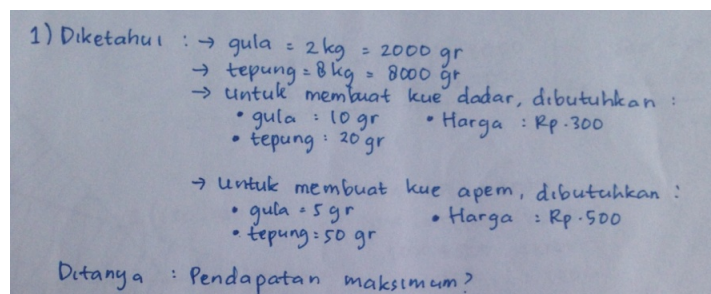 1) Diketahui : → gula = 2 kg = 2000 gr
→ tepung = 8 kg = 8000 gr
→ untuk membuat kue dadar, dibutuhkan :
• gula : 10 gr • Harga : Rp.300
• tepung : 20 gr
→ untuk membuat kue apem, dibutuhkan :
• gula = 5 gr • Harga : Rp.500
• tepung : 50 gr
Ditanya : Pendapatan maksimum?